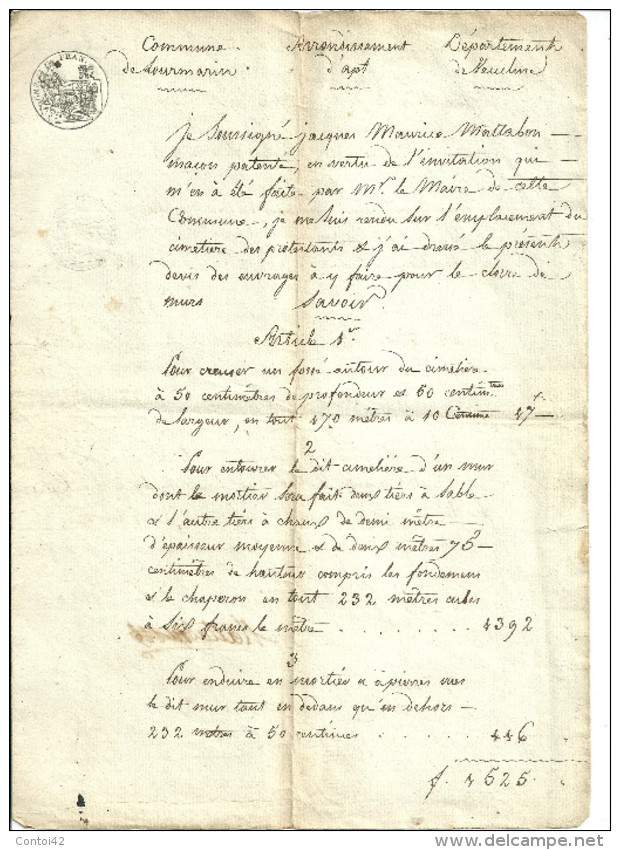 Commune Arrondissement Département
de Lourmarin d'apt de Vaucluse
je Soussigné jacques Maurice Mattabon
macon patenté, en vertu de l'invitation qui
m'en à été faite par Mr. le Maire de cette
Commune, je me suis rendu sur l'emplacement du
cimetiere des protestants & j'ai dressé le présent
devis des ouvrages à y faire pour le clore de
murs Savoir
Article 1er
Pour creuser un fossé autour du cimetière
à 50 centimètres de profondeur et 60 centimtres
de largeur, en tout 170 mètres à 10 Centime 17f
2
Pour entourer le dit cimetière d'un mur
dont le mortier sera fait deux tiers à Sable
& l'autre tiers à chaux de demi mètre
d'épaisseur moyenne & de deux mètres 75
centimètres de hauteur compris les fondemens
& le chaperon en tout 232 mètres cubes
à Six francs le mètre . . . . . . . 1392
3
Pour enduire en mortier à pierres vues
le dit mur tant en dedans qu'en dehors
232 mètres à 50 centimes . . . . . . 116
f. 1525.
Contoi42
www.delcampe.net